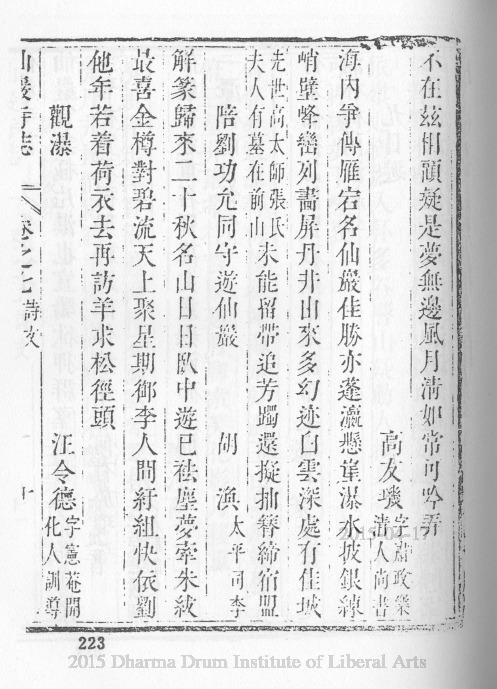 不在茲相顧疑是夢無邊風月清如常可吟弄
高友璣字肅政樂清人尚書
海內爭傳雁宕名仙巖佳勝亦蓬瀛懸崖瀑水披銀練
峭壁峰巒列畵屏丹井由來多幻迹白雲深處有佳城
先世高太師張氏夫人有墓在前山未能留帶追芳躅還擬抽簪締宿盟
陪劉功允同守遊仙巖 胡渙太平司李
解篆歸來二十秋名山日日臥中遊已袪塵夢牽朱紱
最喜金樽對碧流天上聚星期御李人間紆組快依劉
他年若着荷衣去再訪羊求松徑頭
觀瀑 汪令德字憲菴開化人訓導
仙巖寺志 卷之七 詩文 十
223
2015-07-17
2015 Dharma Drum Institute of Liberal Arts